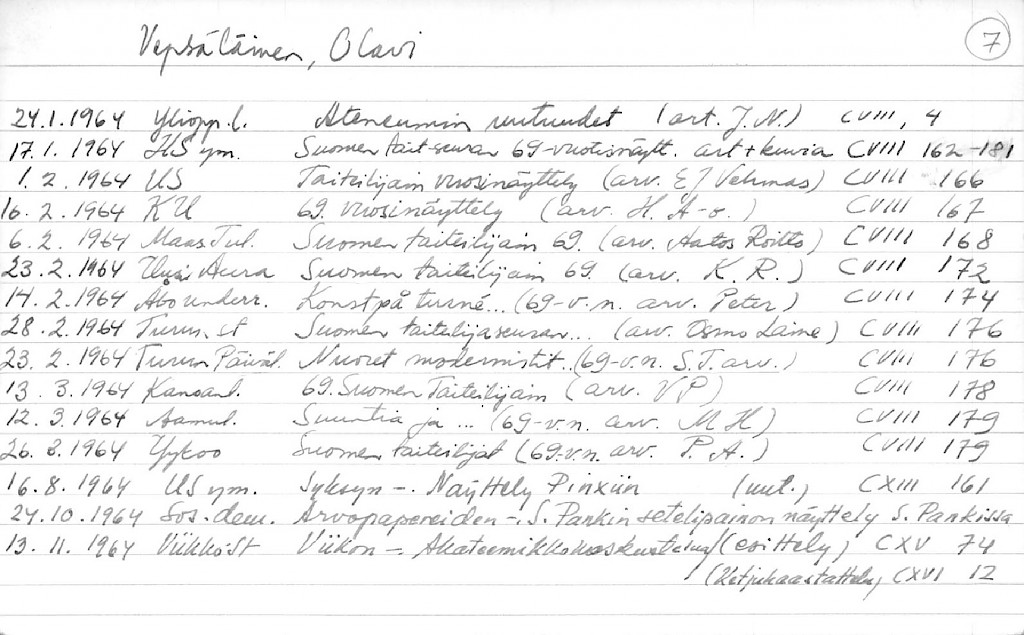 Vepsäläinen, Olavi
7
24.1.1964 Yliopp.l. Ateneumin uutuudet (art. J.N.) CVIII, 4
17.1.1964 HS ym. Suomen tait-seuran 69-vuotisnäytt. art+kuvia CVIII 162-181
1.2.1964 US Taiteilijain vuosinäyttely (arv. E J Vehmas) CVIII 166
16.2.1964 KU 69. vuosinäyttely (arv. H. A-o.) CVIII 167
6.2.1964 Maas.Tul. Suomen taiteilijain 69. (arv. Aatos Roitto) CVIII 168
23.2.1964 Uusi Aura Suomen taiteilijain 69. (arv. K.R.) CVIII 172
14.2.1964 Åbo underr. Konst på turné... (69-v.n. arv. Peter) CVIII 174
28.2.1964 Turun. st Suomen taiteilijaseuran... (arv. Osmo Laine) CVIII 176
23.2.1964 Turun Päiväl. Nuoret modernistit.. (69-v.n. S.T. arv.) CVIII 176
13.3.1964 Kansanl. 69. Suomen Taiteilijain (arv. VP) CVIII 178
12.3.1964 Aamul. Suuntia ja ... (69-v.n. arv. MH) CVIII 179
26.3.1964 Suomen taiteilijat (69.v.n. arv. P.A.) CVIII 179
16.8.1964 US ym. Syksyn -. Näyttely Pinxiin (uut.) CXIII 161
24.10.1964 Sos.dem. Arvopapereiden -. S. Pankin setelipainon näyttely S. Pankissa
13.11.1964 ViikkoSt Viikon -. (esittely) CXV 74
CXVI 12